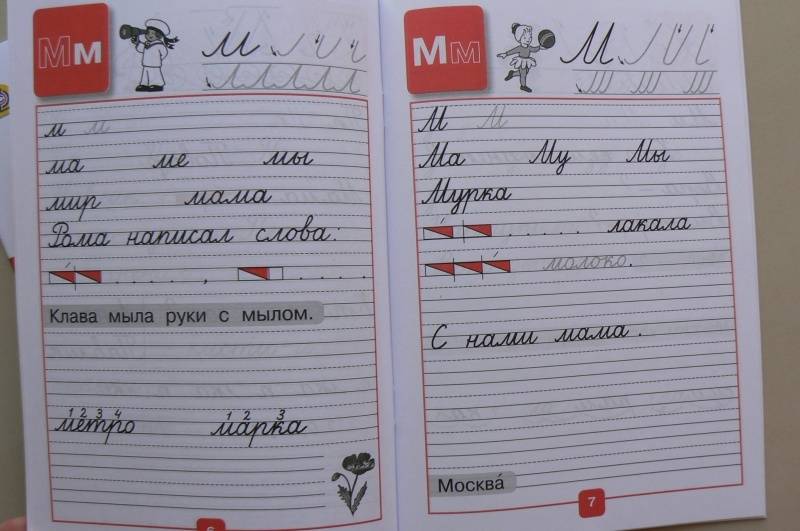 Мм
М
м м
ма ме мы
мир мама
Рома написал слова:
. . . . . , . . . . .
Клава мыла руки с мылом.
1 2 3 4 1 2 3
метро марка
6
Мм
М
М М
Ма Му Мы
Мурка
. . . . . лакала
молоко.
С нами мама .
Москва́
7